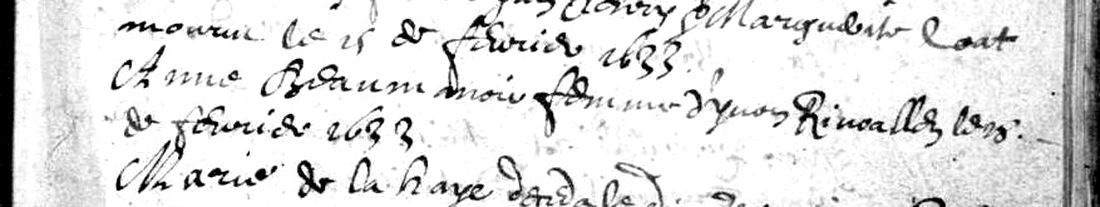 Marguerite Loat
mourut le 15 de febvrier 1633
Anne Beaumanoir femme d'yvon Rivoallen le 15
de febvrier 1633
Marie de la haye